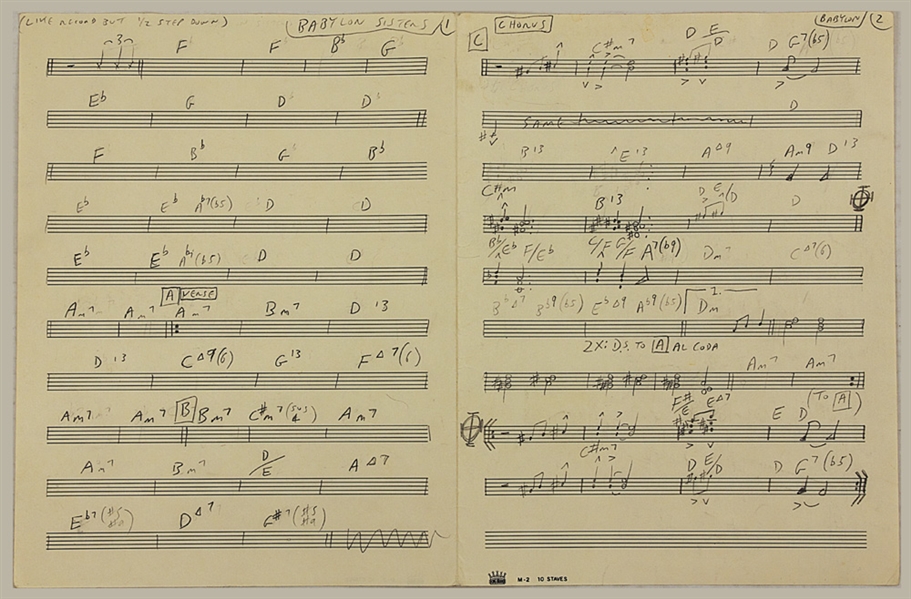 (LIKE RECORD BUT 1/2 STEP DOWN) BABYLON SISTERS / 1
3 F F Bb Gb
Eb G Db Db
F Bb G Bb
Eb Eb Ab7(b5) D D
Eb Eb Ab7(b5) D D
A VERSE
Am7 Am7 Am7 Bm7 D13
D13 C△9(6) G13 F△7(6)
Am7 Am7 B Bm7 C#m7(sus4) Am7
Am7 Bm7 D/E A△7
Eb7(#5 #9) D△7 G#7(#5 #9)
C CHORUS BABYLON / 2
C#m7 D E/D D G7(b5)
SAME D
B13 E13 A△9 Am9 D13
C#m B13 D E/D D
Bb/Eb F/Eb C/F G/F A7(b9) Dm7 C△7(6)
Bb△7 Bb9(b5) Eb△9 Ab9(b5) 1. Dm
2X: D.S. TO A AL CODA
Am7 Am7
F#/E E△7 E D (TO A)
C#m7 D E/D D G7(b5)
M-2 10 STAVES